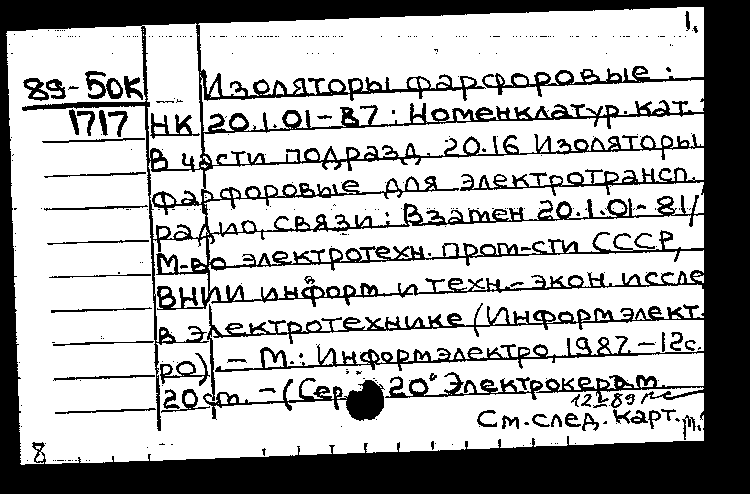 1.
89-50К Изоляторы фарфоровые :
1717 НК 20.1.01-87 : Номенклатур. кат. :
В части подразд. 20.16 Изоляторы
фарфоровые для электротрансп.
радио, связи : Взамен 20.1.01-81/
М-во электротехн. пром-сти СССР,
ВНИИ информ. и техн.-экон. иссле
в электротехнике (Информэлект-
ро). - М. : Информэлектро, 1987. - 12с.
20 см. - (Сер. 20 Электрокерам.
См. след. карт.
8